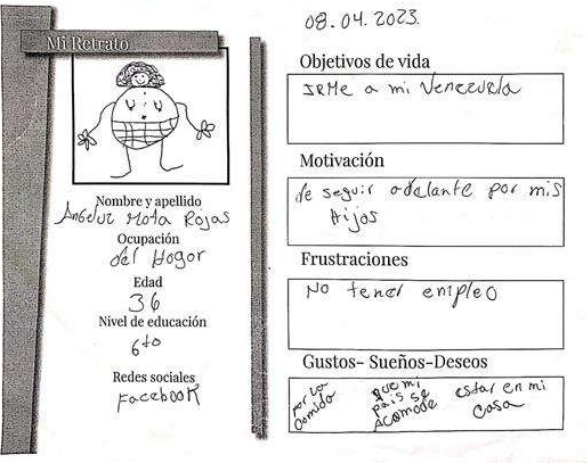 Mi Retrato
Nombre y apellido
Angeluz Mota Rojas
Ocupación
del Hogar
Edad
36
Nivel de educación
6to
Redes sociales
Facebook
08.04.2023.
Objetivos de vida
IRMe a mi Venezuela
Motivación
de seguir adelante por mis
Hijos
Frustraciones
No tener empleo
Gustos- Sueños-Deseos
por la
comida
que mi
pais se
Acomode
estar en mi
casa